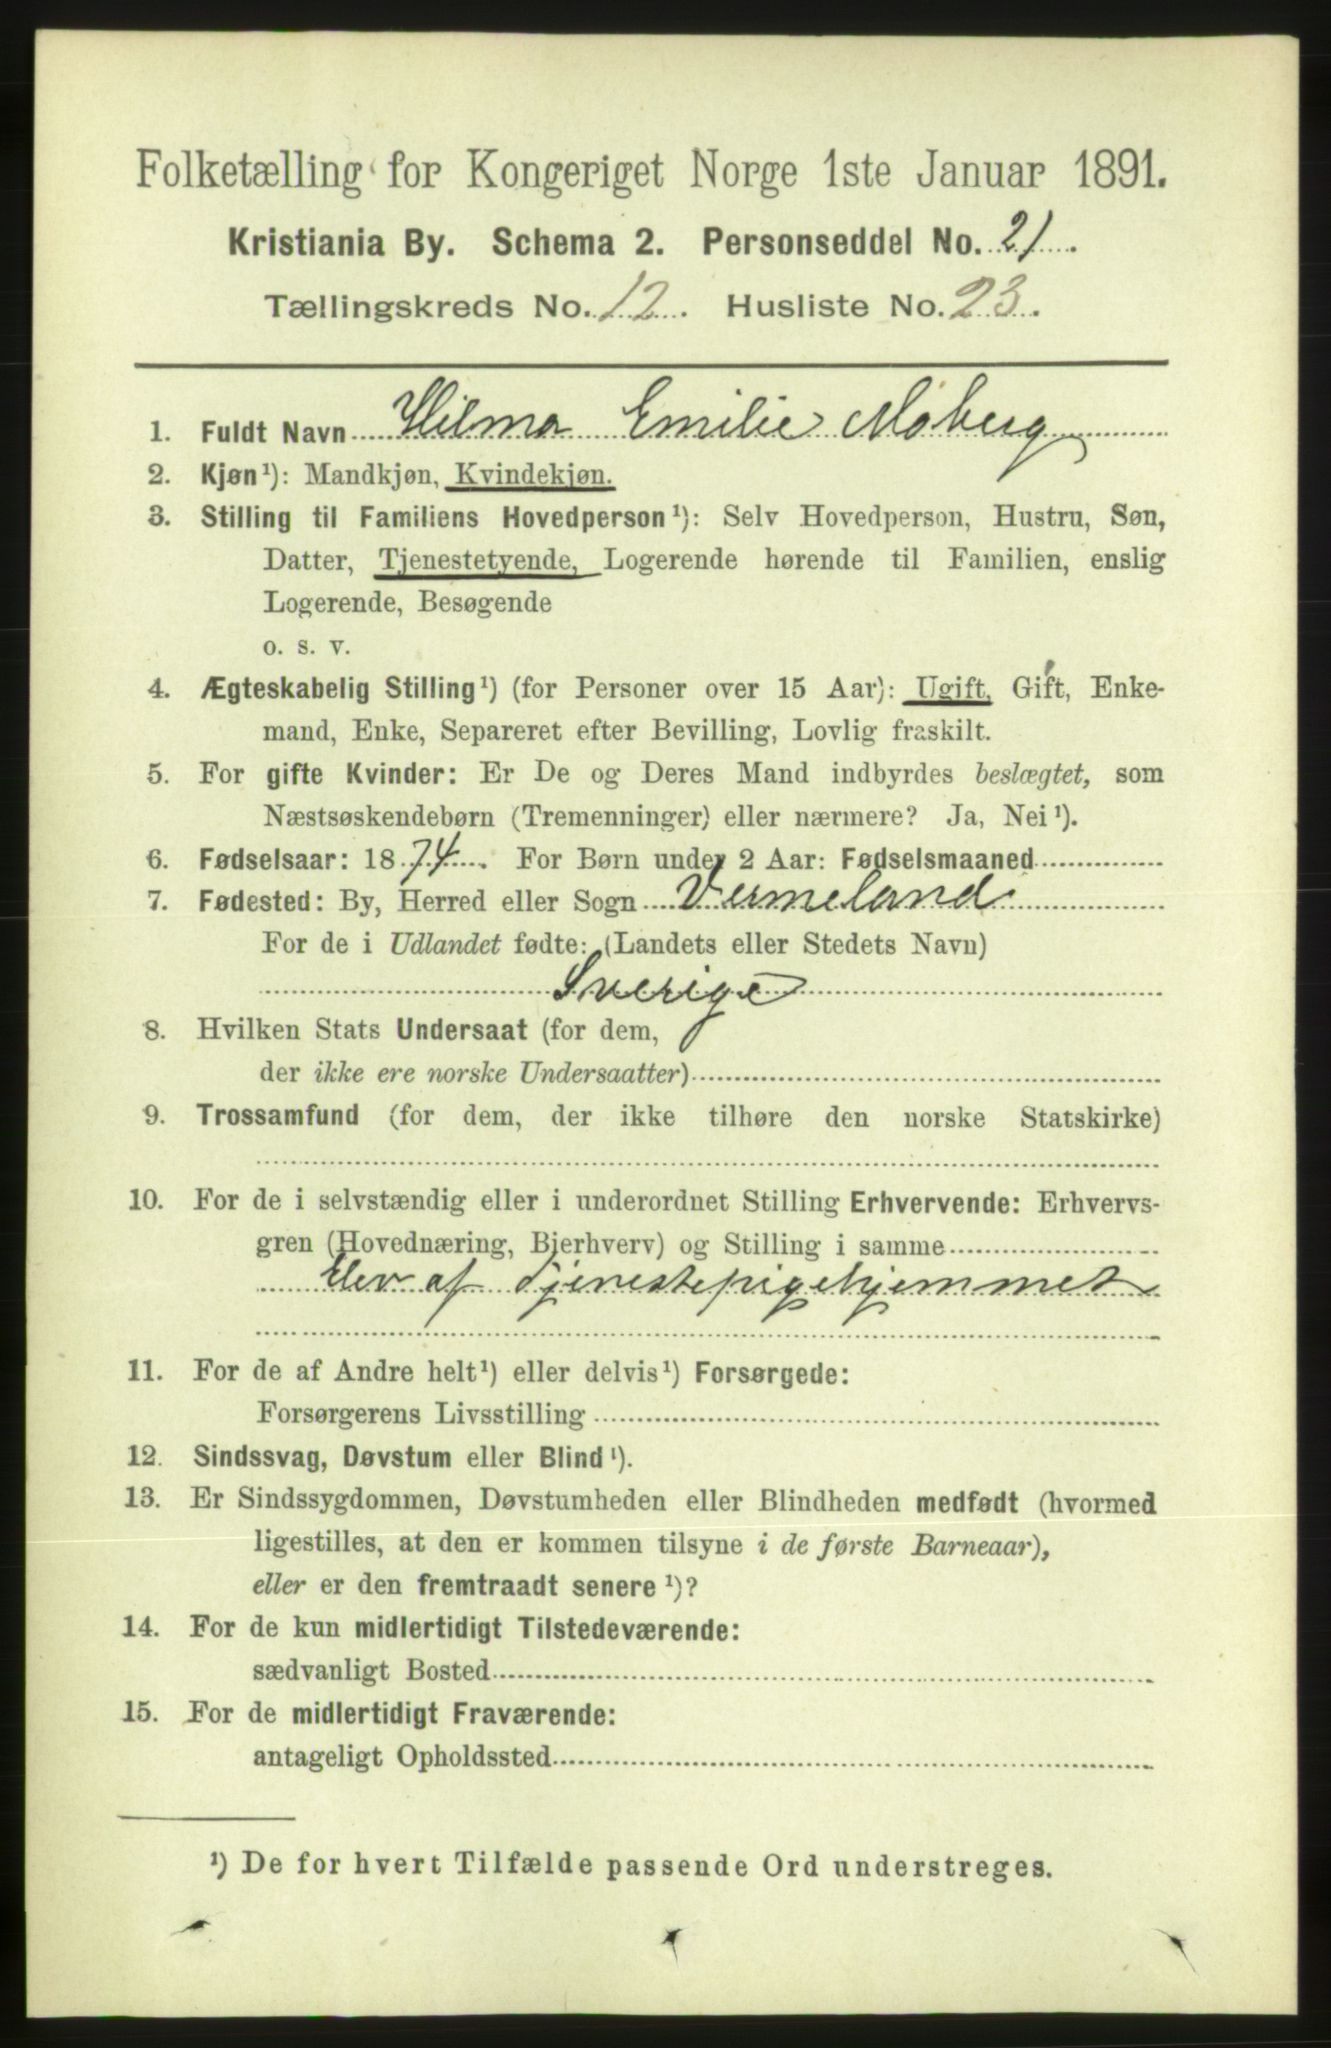 Folketælling for Kongeriget Norge 1ste Januar 1891.
Kristiania By. Schema 2. Personseddel No. 21.
Tællingskreds No. 12. Husliste No. 23.
1. Fuldt Navn Hilma Emilie Moberg
2. Kjøn¹): Mandkjøn, Kvindekjøn.
3. Stilling til Familiens Hovedperson¹): Selv Hovedperson, Hustru, Søn,
Datter, Tjenestetyende, Logerende hørende til Familien, enslig
Logerende, Besøgende
o. s. v.
4. Ægteskabelig Stilling¹) (for Personer over 15 Aar): Ugift, Gift, Enke-
mand, Enke, Separeret efter Bevilling, Lovlig fraskilt.
5. For gifte Kvinder: Er De og Deres Mand indbyrdes beslægtet, som
Næstsøskendebørn (Tremenninger) eller nærmere? Ja, Nei¹).
6. Fødselsaar: 1874. For Børn under 2 Aar: Fødselsmaaned
7. Fødested: By, Herred eller Sogn Vermeland
For de i Udlandet fødte: (Landets eller Stedets Navn)
Sverige
8. Hvilken Stats Undersaat (for dem,
der ikke ere norske Undersaatter)
9. Trossamfund (for dem, der ikke tilhøre den norske Statskirke)
10. For de i selvstændig eller i underordnet Stilling Erhvervende: Erhvervs-
gren (Hovednæring, Bierhverv) og Stilling i samme
Elev af Tjenestepigehjemmet
11. For de af Andre helt¹) eller delvis¹) Forsørgede:
Forsørgerens Livsstilling
12. Sindssvag, Døvstum eller Blind¹).
13. Er Sindssygdommen, Døvstumheden eller Blindheden medfødt (hvormed
ligestilles, at den er kommen tilsyne i de første Barneaar),
eller er den fremtraadt senere¹)?
14. For de kun midlertidigt Tilstedeværende:
sædvanligt Bosted
15. For de midlertidigt Fraværende:
antageligt Opholdssted
¹) De for hvert Tilfælde passende Ord understreges.